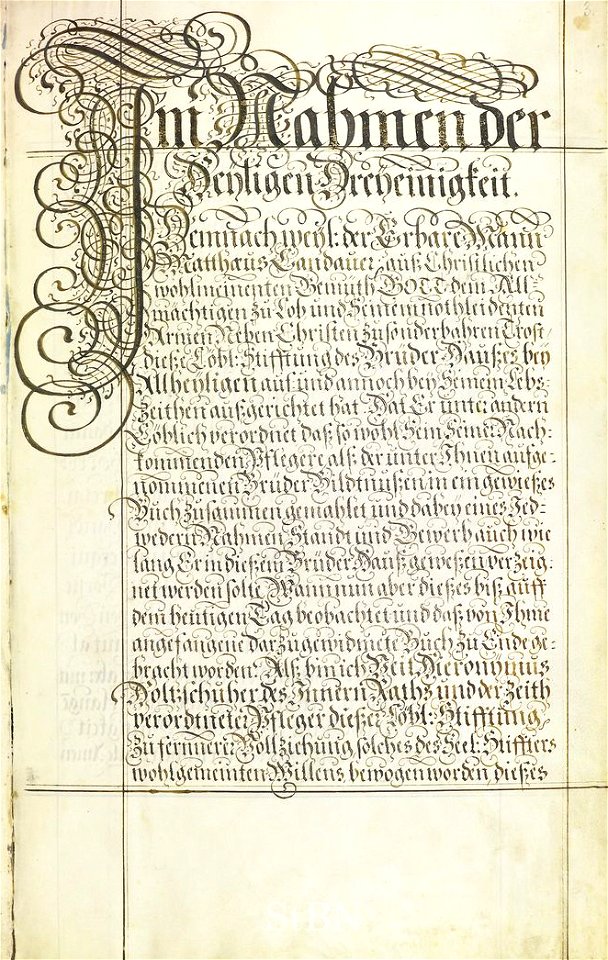 Im Nahmen der
Heyligen Dreyeinigkeit.
Demnach weyl: der Erbare Mann
Matthäus Landauer, auß Christlichen
wohlmeinenten Gemüth GOTT dem All-
mächtigen zu Lob und Seinem nothleidenten
Armen Neben Christen zu sonderbahren Trost,
dieße Löbl: Stifftung des Brüder Haußes bey
Allheyligen auf und annoch bey Seinem Lebs-
Zeithen aufgerichtet hat. Hat Er unter andern
Löblich verordnet daß so wohl Sein Seine Nach-
kommenden Pflegere alß der unter Ihnen aufge-
nommenen Brüder Bildtnußen in ein gewießes
Buch zusammen gemahlet und dabey eines Jed-
wedern Nahmen Standt und Gewerb auch wie
lang Er in dießem Brüder Hauß geweßen verzeig-
net werden solte, Wann nun aber dießes biß auff
dem heutigen Tag beobachtet und daß von Ihme
angefangene darzu gewidmete Buch zu Ende ge-
bracht worden: Alß bin ich Veit Hieronymus
Holtzschuher des Innern Raths und der Zeith
verordneter Pfleger dießer Löbl: Stifftung,
Zu fernerer Vollziehung solches des Seel: Stiffters
wohlgemeinten Willens bewogen worden dießes